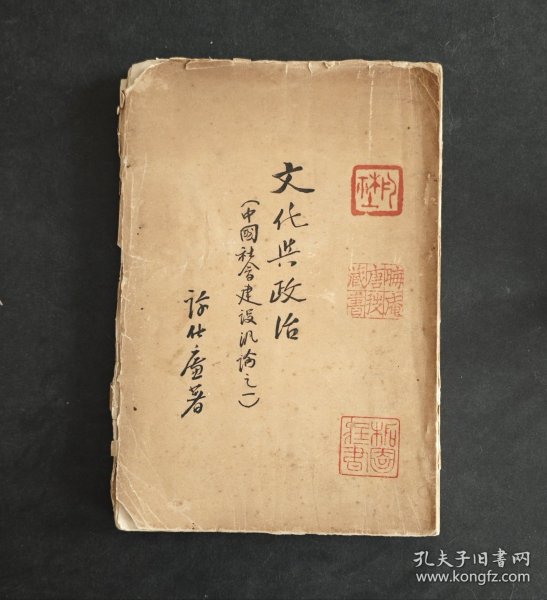 文化與政治
(中國社會建設汎論之一)
許仕廉著
孔夫子旧书网
www.kongfz.com